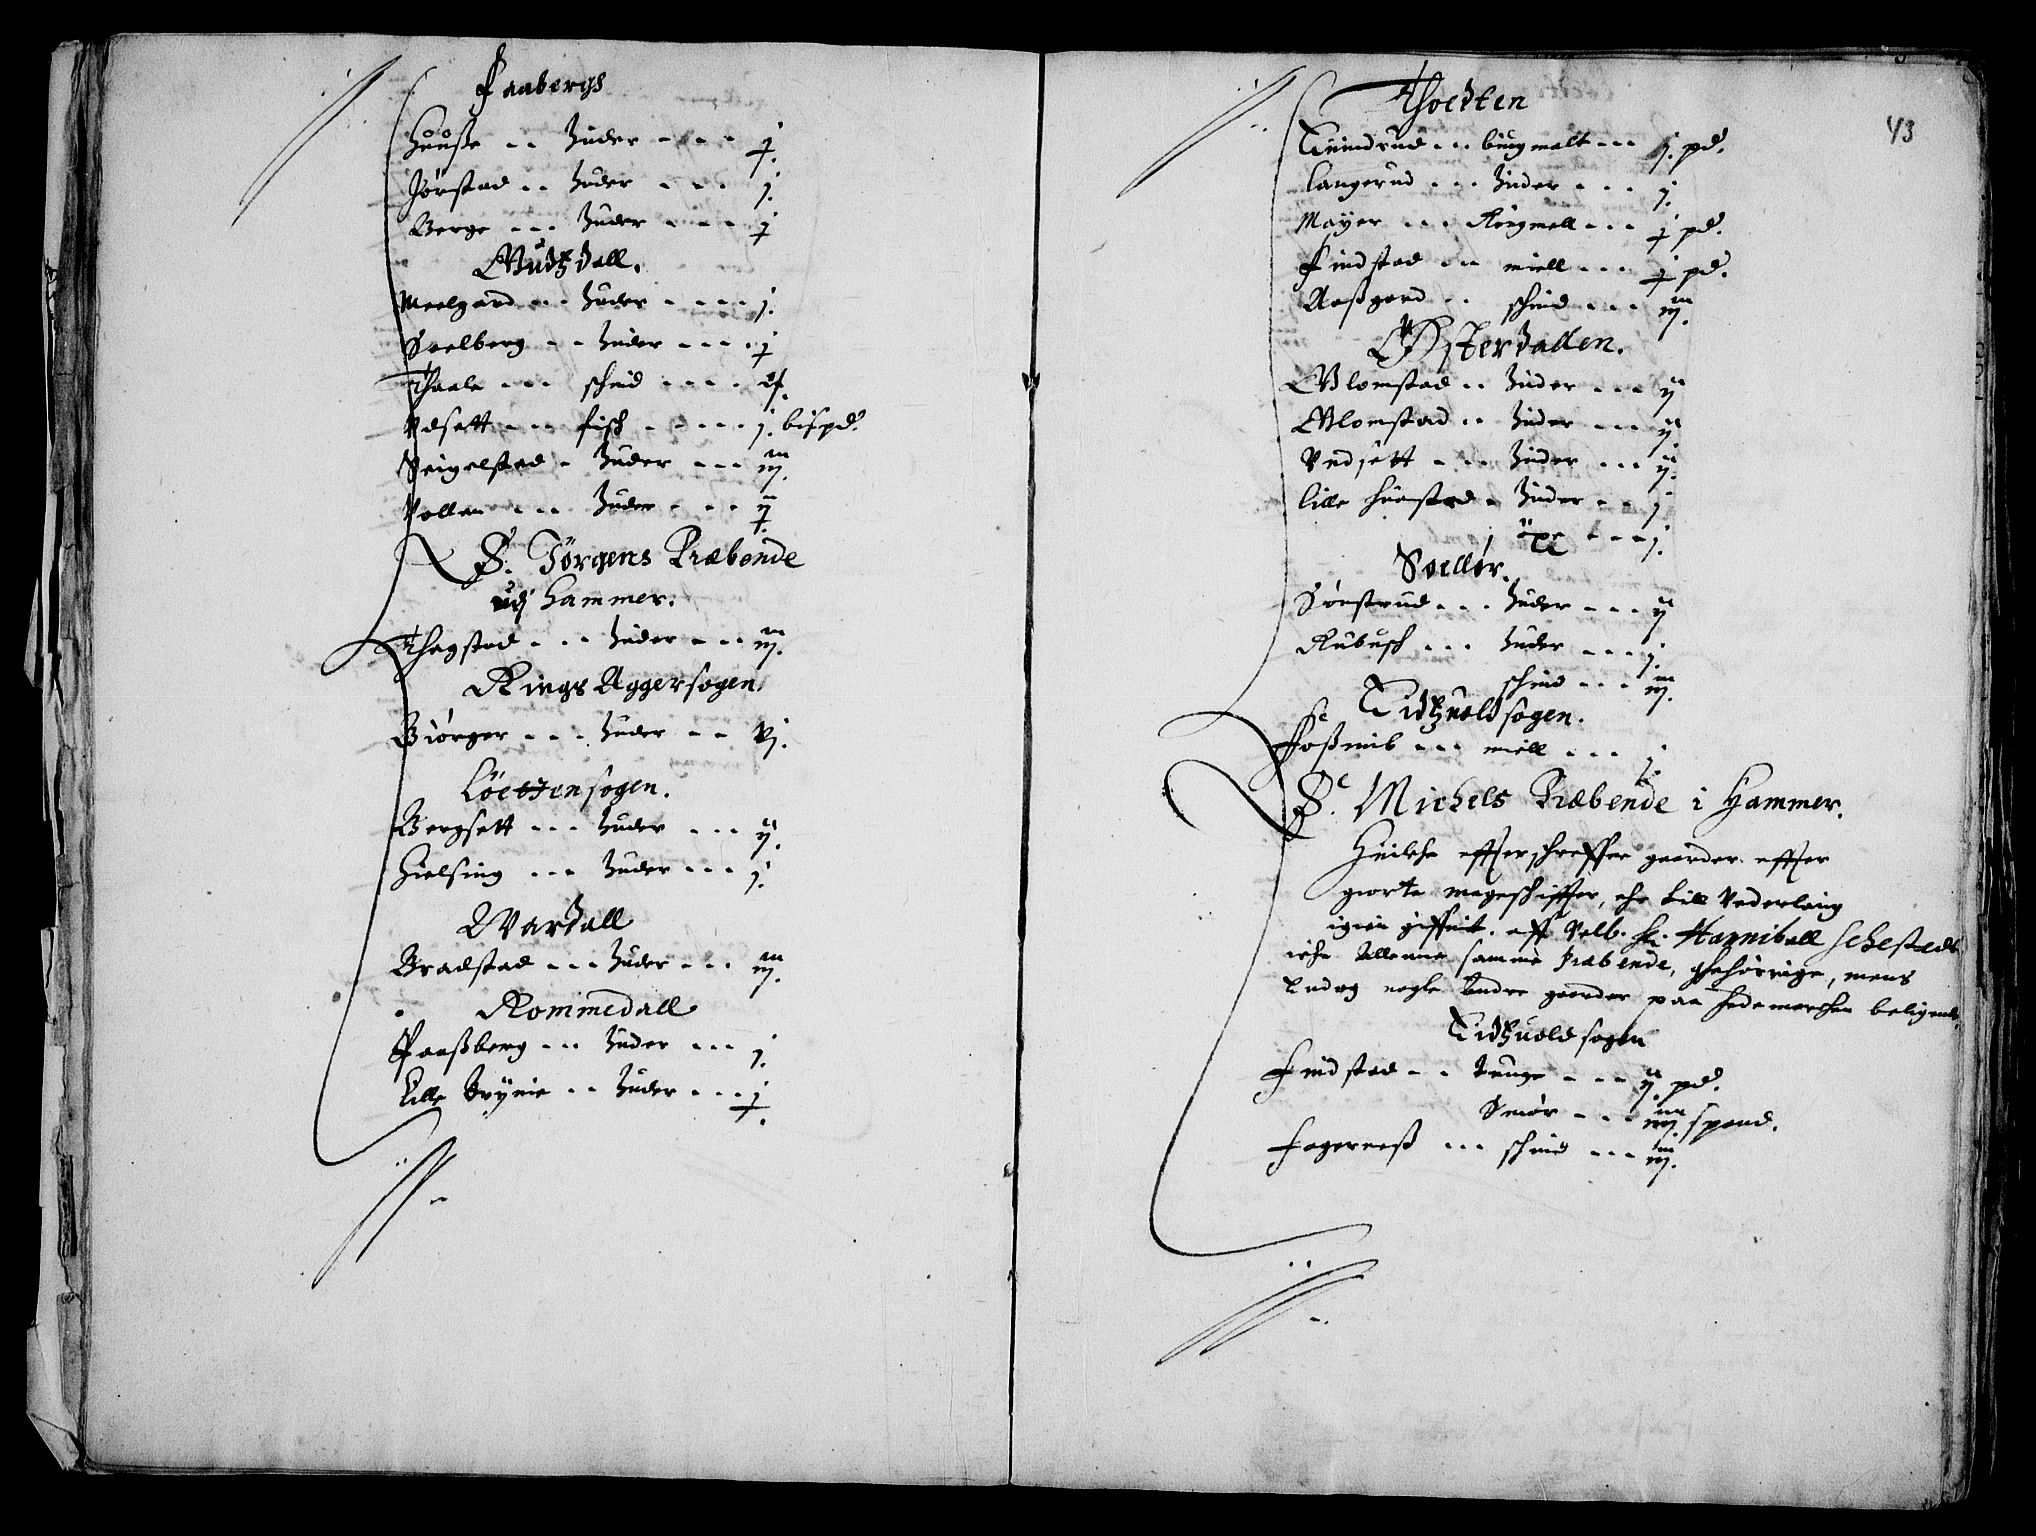 Faabergs
Huuße -- huder ---- j.
Jørstad -- huder --- j.
Berge --- huder ---- j
Gudtzdall.
Meelgard --- huder ---- j.
Soelberg -- huder ---- j
Thaale --- schind ----
Vdsett --- fisch ----- j. bispd.
Seigelstad - huder --- iij.
Vollen --- huder --- ij
S. Jørgens Præbende
udj Hammer.
Thogstad --- huder --- iij.
Rings Aggersogen.
Biørger --- huder -- vj.
Løettensogen.
Bergsett --- huder --- ij.
Hielsing --- huder --- j.
Wardall
Bradstad --- huder --- iij.
Rommedall
Faaßberg --- huder --- j.
Lille Brynie -- huder --- j
43
Thoctten
Tuindrud --- biugmalt --- j. pd.
Langerud --- huder --- j.
Mayer --- Rougmell --- j pd.
Findstad -- miell --- j pd.
Aaßgard -- schind --- iij.
Østerdallen.
Blomstad -- huder --- ij
Blomstad -- huder --- ij.
Vndsett --- huder --- ij.
Lille huuestad - huder -- j
öxe --- j.
Soellør.
Sönstrud --- huder --- ij
Rubusch --- huder --- j.
schind --- iij.
Tidtzuoldsogen.
Foßmib --- miell --- j.
S. Michels Præbende i Hammer.
Huilche effterschreffne gaarder effter
giorte mageschiffter, ehr till Vederlaug
igien giffuit. aff Velb. Hr. Hanniball Sehesteds
iche Allenne samme Præbende, gehörrige, mens
Endog nogle Andre gaarder paa Hedemarchen beligende
Tidtzuold sogen
Findstad -- tunge --- ij. pd.
Smör --- iiij spand.
Fagerneß --- schind --- iij.